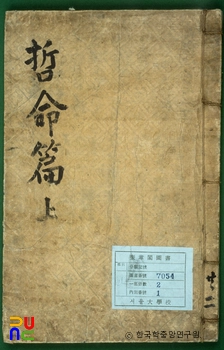 哲命篇
上
奎章閣圖書
7054
2
1
서울大學校
共二
© 한국학중앙연구원